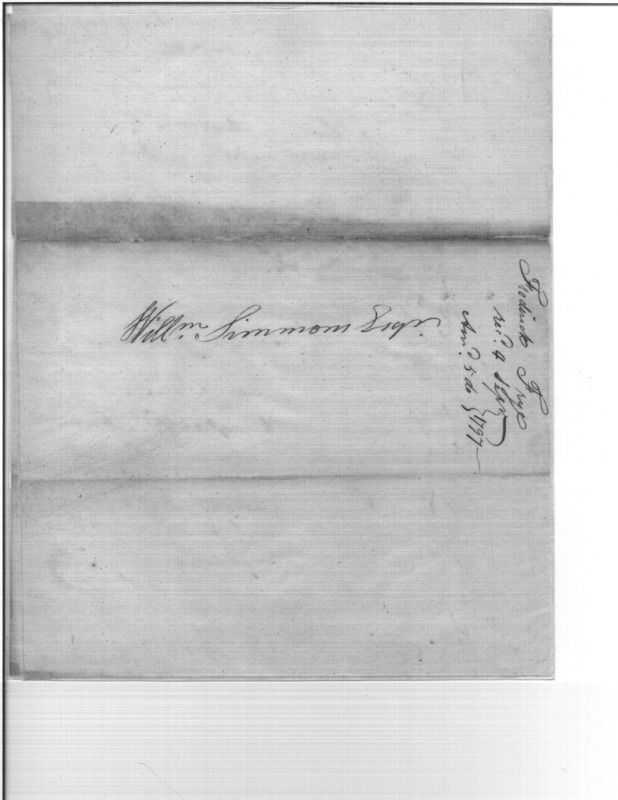 Willm. Simmons Esqr.
Frederick Frye
rec.d 4 Sepr.
Ans.d 5 do } 1797